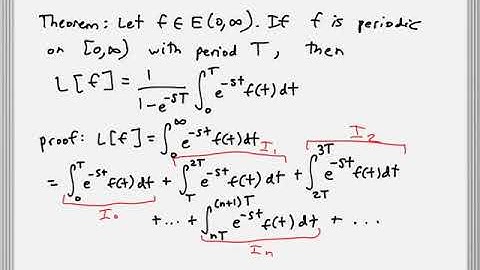 Theorem: Let f ∈ E(0,∞). If f is periodic
on [0,∞) with period T, then
L[f] = 1/(1-e^{-sT}) ∫_0^T e^{-st} f(t) dt
proof: L[f] = ∫_0^∞ e^{-st} f(t) dt
I_1 I_2
= ∫_0^T e^{-st} f(t) dt + ∫_T^{2T} e^{-st} f(t) dt + ∫_{2T}^{3T} e^{-st} f(t) dt
I_0
+ ... + ∫_{nT}^{(n+1)T} e^{-st} f(t) dt + ...
I_n